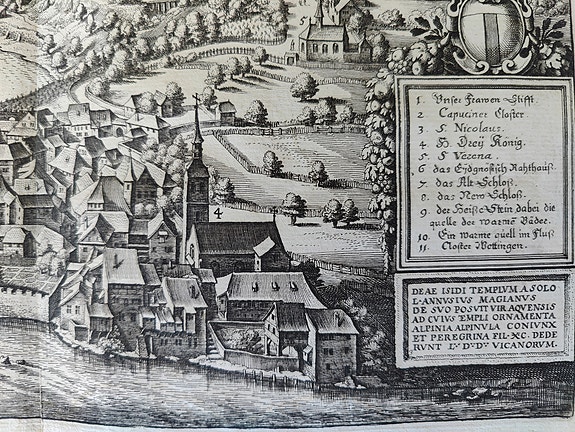 1. Unser Frawen Stifft.
2 Capuciner Closter.
3 S. Nicolaus.
4 H. Dreÿ König.
5. S Verena.
6 das Eydgnosisch Rahthauß.
7 das Alt Schloß.
8. das New Schloß.
9. der Heiße Stein dabei die
quelle der warmē Bäder.
10. Ein warme quell im Fluß
11. Closter Wettingen.
DEAE ISIDI TEMPLUM A SOLO
L·ANNUSIUS MAGIANUS
DE SUO POSUIT VIR AQUENSIS
AD CUIUS TEMPLI ORNAMENTA
ALPINIA ALPINULA CONIUNX
ET PEREGRINA FIL·XC· DEDE
RUNT L· D· D· VICANORUM.
5
4
6